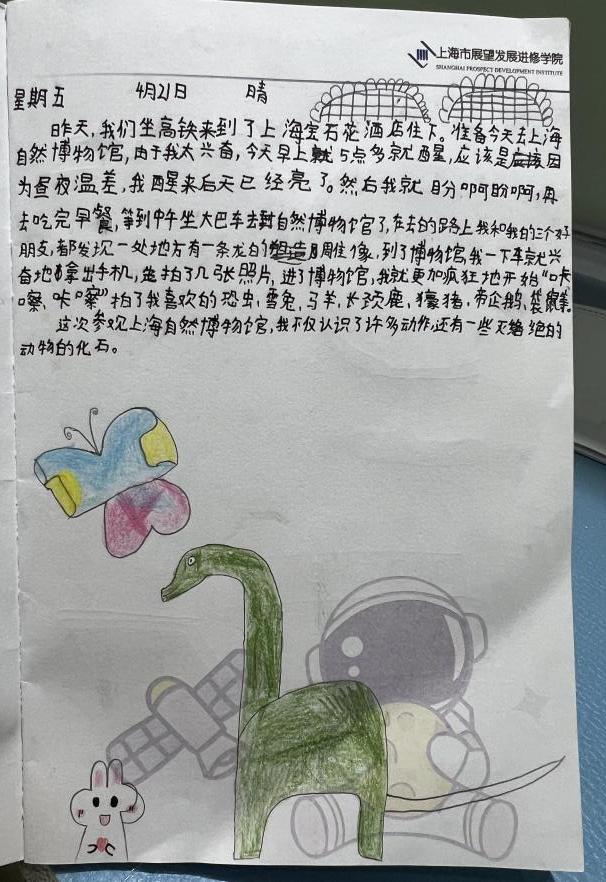 上海市展望发展进修学院
SHANGHAI PROSPECT DEVELOPMENT INSTITUTE
星期五 4月21日 晴
昨天,我们坐高铁来到了上海宝石花酒店住下。准备今天去上海
自然博物馆,由于我太兴奋,今天早上就5点多就醒,应该是因
为昼夜温差,我醒来后天已经亮了。然后我就盼啊盼啊,再
去吃完早餐,等到中午坐大巴车去到自然博物馆了,在去的路上我和我的三个好
朋友,都发现一处地方有一条龙的塑造周佳像,到了博物馆,我一下车就兴
奋地拿出手机,拍了几张照片,进了博物馆,我就更加疯狂地开始“咔
嚓,咔嚓”拍了我喜欢的恐虫,雪兔,马羊,长颈鹿,獴猪,帝企鹅,袋鼠
这次参观上海自然博物馆,我不仅认识了许多动作,还有一些灭绝的
动物的化石。